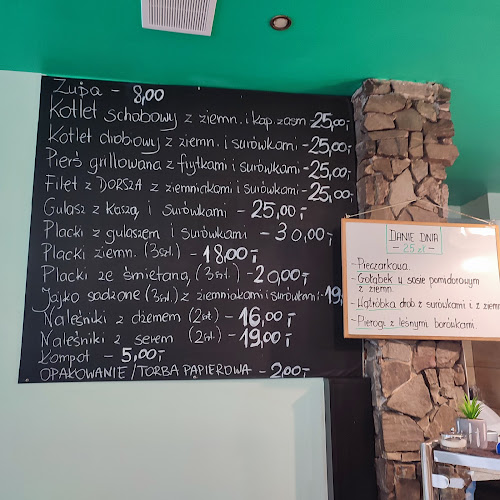 Zupa - 8,00
Kotlet schabowy z ziemn. i kap. zasm - 25,00,-
Kotlet drobiowy z ziemn. i surówkami - 25,00,-
Pierś grillowana z frytkami i surówkami - 25,00,-
Filet z DORSZA z ziemniakami i surówkami - 25,00
Gulasz z kaszą i surówkami - 25,00,-
Placki z gulaszem i surówkami - 30,00,-
Placki ziemn. (3szt.) - 18,00,-
Placki ze śmietaną (3szt.) - 20,00,-
Jajko sadzone (3szt.) z ziemniakami i surówkami - 19,
Naleśniki z dżemem (2szt) - 16,00,-
Naleśniki z serem (2szt.) - 19,00,-
Kompot - 5,00,-
OPAKOWANIE / TORBA PAPIEROWA - 2,00,-
DANIE DNIA
- 25 zł -
- Pieczarkowa
- Gołąbek w sosie pomidorowym
z ziemn.
- Wątróbka drob z surówkami i z ziemn
- Pierogi z leśnymi borówkami